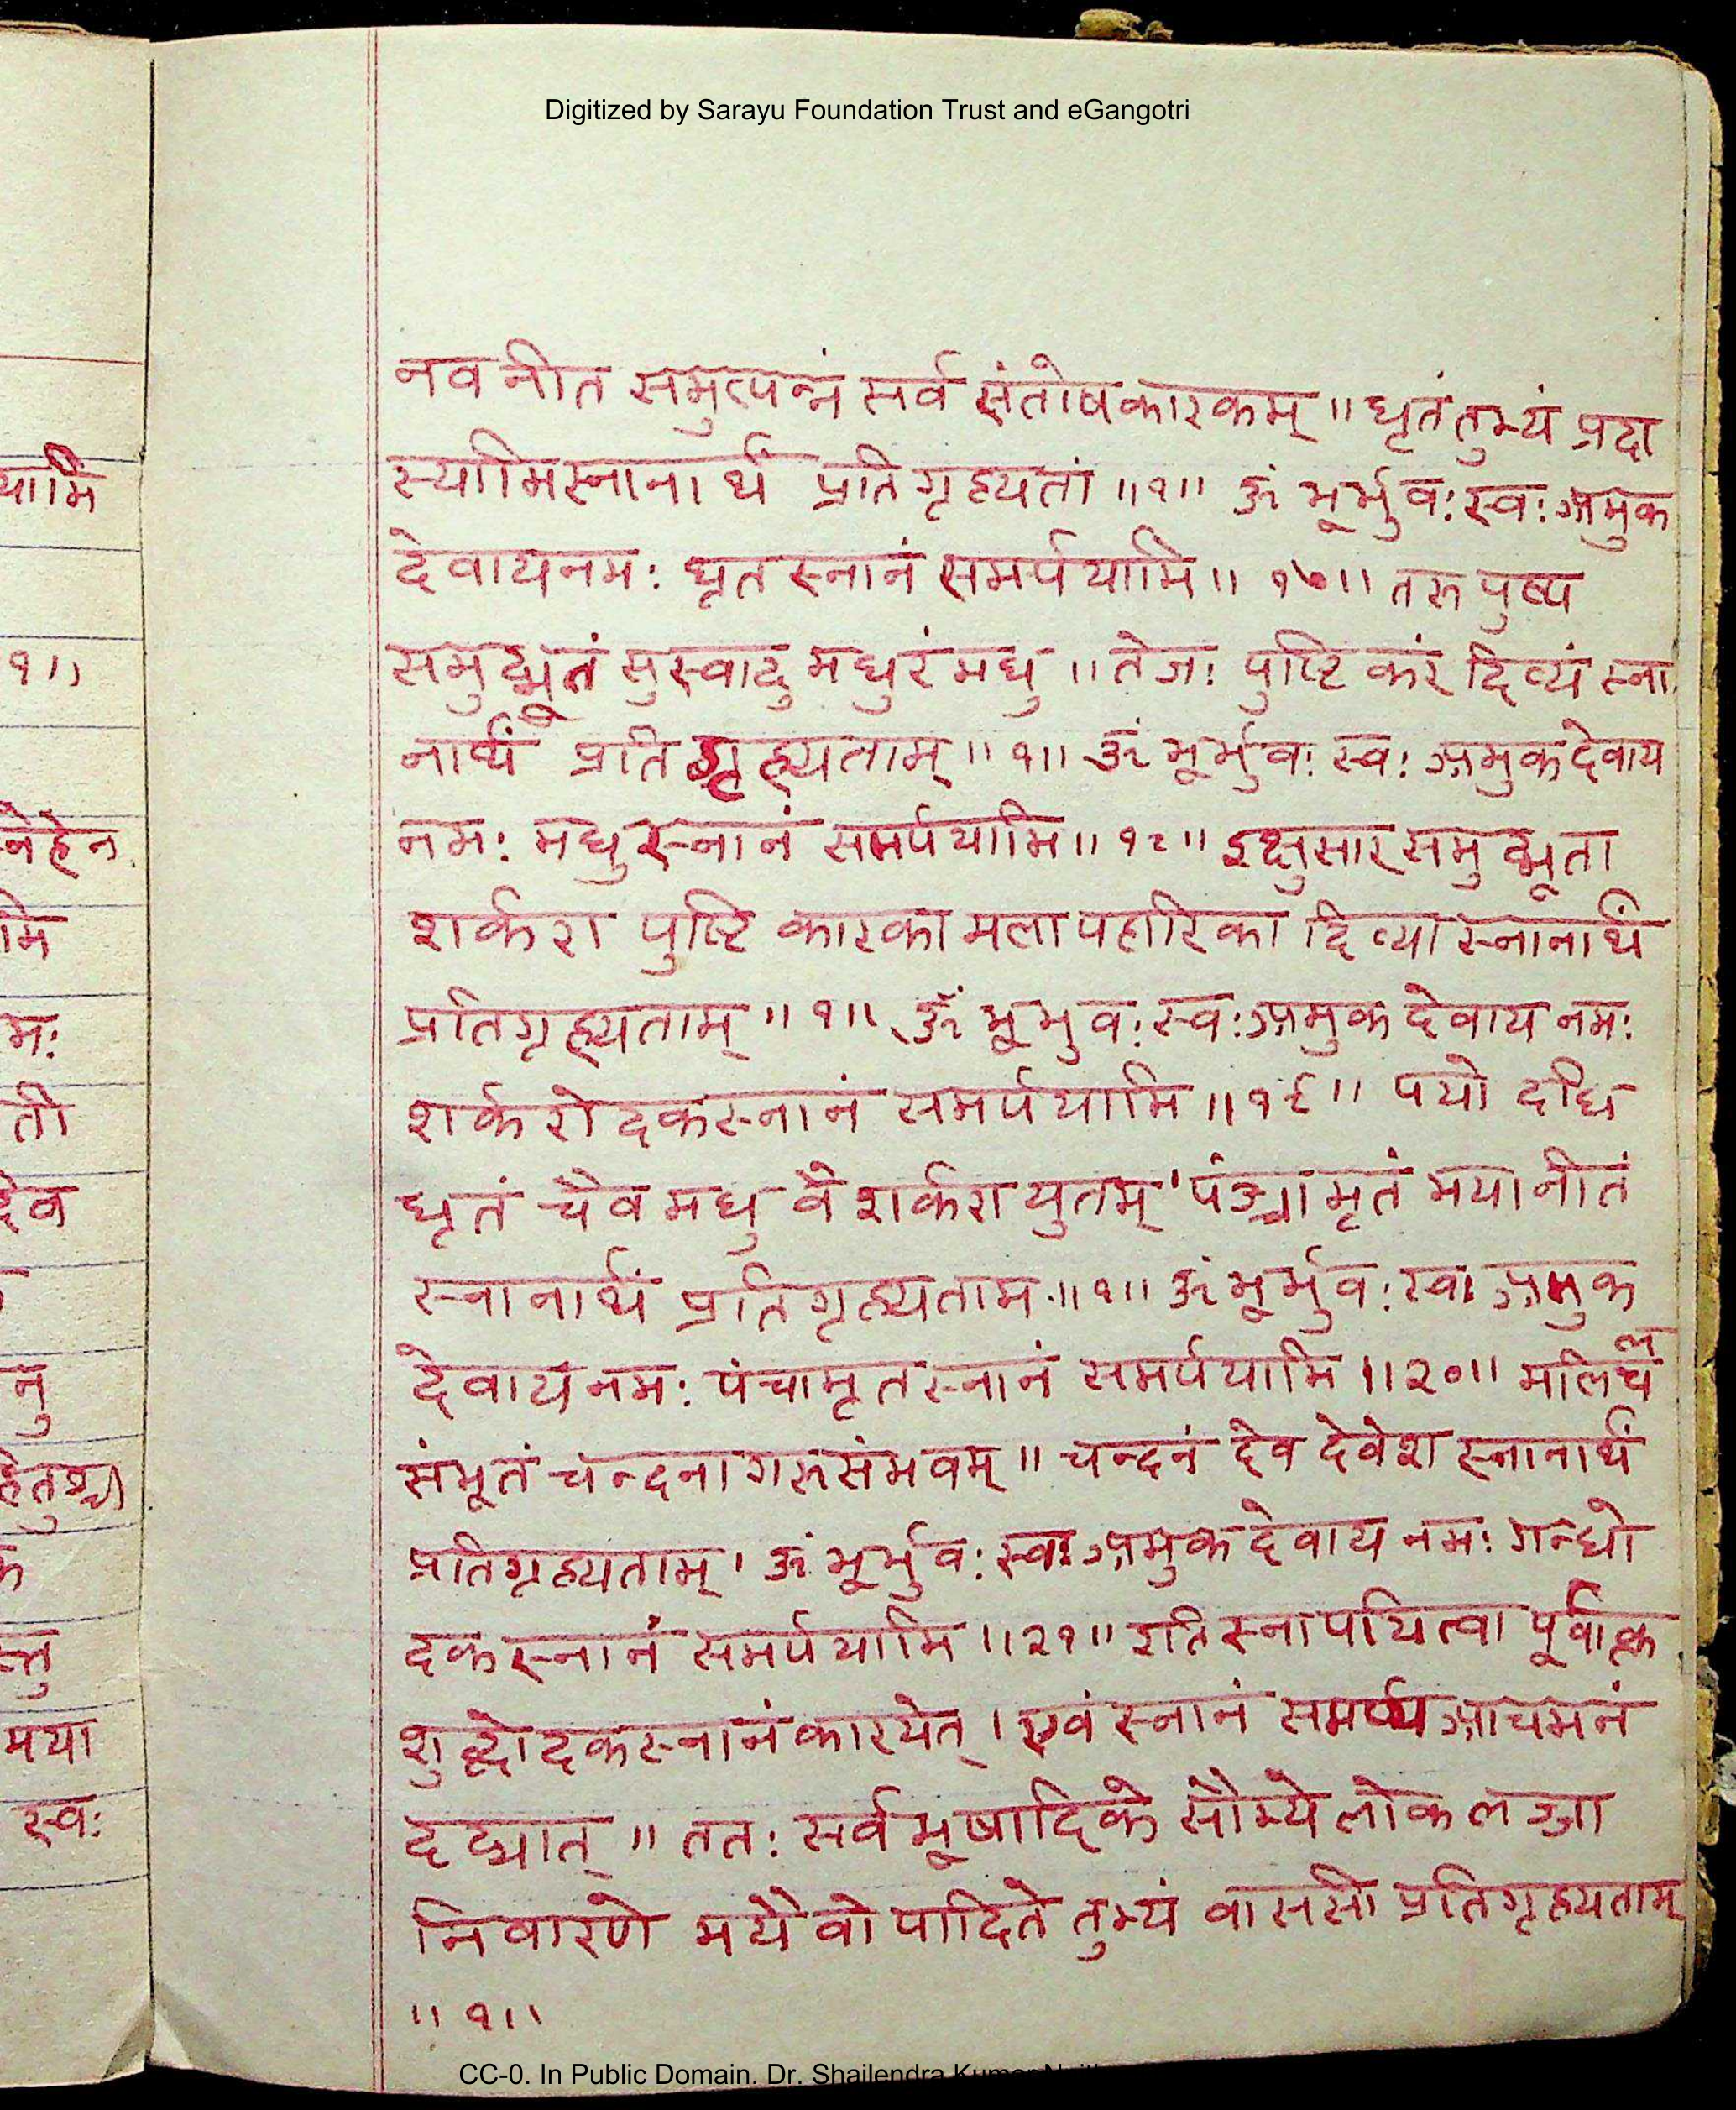 Digitized by Sarayu Foundation Trust and eGangotri
नव नीत समुत्पन्नं सर्व संतोषकारकम् ॥ घृतं तुभ्यं प्रदा
स्यामिस्नानार्थं प्रति गृह्यतां ॥१॥ ॐ भूर्भुवः स्वः अमुक
देवायनमः घृत स्नानं समर्पयामि ॥ १७॥ तरु पुष्प
समुद्भूतं सुस्वादु मधुरं मधु ॥ तेजः पुष्टि करं दिव्यं स्ना
नार्थं प्रति गृह्यताम् ॥ १॥ ॐ भूर्भुवः स्वः अमुक देवाय
नमः मधु स्नानं समर्पयामि ॥ १८॥ इक्षुसार समुद्भूता
शर्करा पुष्टि कारका मलापहारिका दिव्या स्नानार्थं
प्रतिगृह्यताम् ॥ १॥ ॐ भूभुवः स्वः अमुक देवाय नमः
शर्करोदकस्नानं समर्पयामि ॥१९॥ पयो दधि
घृतं चैव मधु वै शर्करा युतम् । पंञ्चामृतं मयानीतं
स्नानार्थं प्रतिगृह्यताम ॥१॥ ॐ भूर्भुवः स्वः अमुक
देवाय नमः पंचामृत स्नानं समर्पयामि ॥२०॥
संभूतं चन्दनागरुसंभवम् ॥ चन्दनं देव देवेश स्नानार्थं
प्रतिगृह्यताम् । ॐ भूर्भुवः स्वः अमुक देवाय नमः गन्धो
दक स्नानं समर्पयामि ॥२१॥ इति स्नापयित्वा
शुद्धोदकस्नानं कारयेत् । एवं स्नानं समर्प्य आचमनं
दद्यात् ॥ ततः सर्वभूषादिके सौम्ये लोक लज्जा
निवारणे मयैवोपादिते तुभ्यं वाससी प्रतिगृह्यताम्
॥ १॥
CC-0. In Public Domain. Dr. Shailendra Kumar
यामि
१॥
नेहेन
मि
मः
ती
देव
नु
स्तु
मया
स्वः